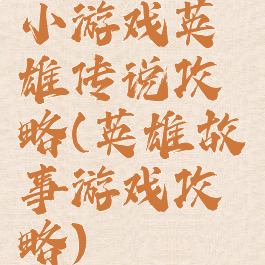 小游戏英
雄传说攻
略(英雄故
事游戏攻
略)